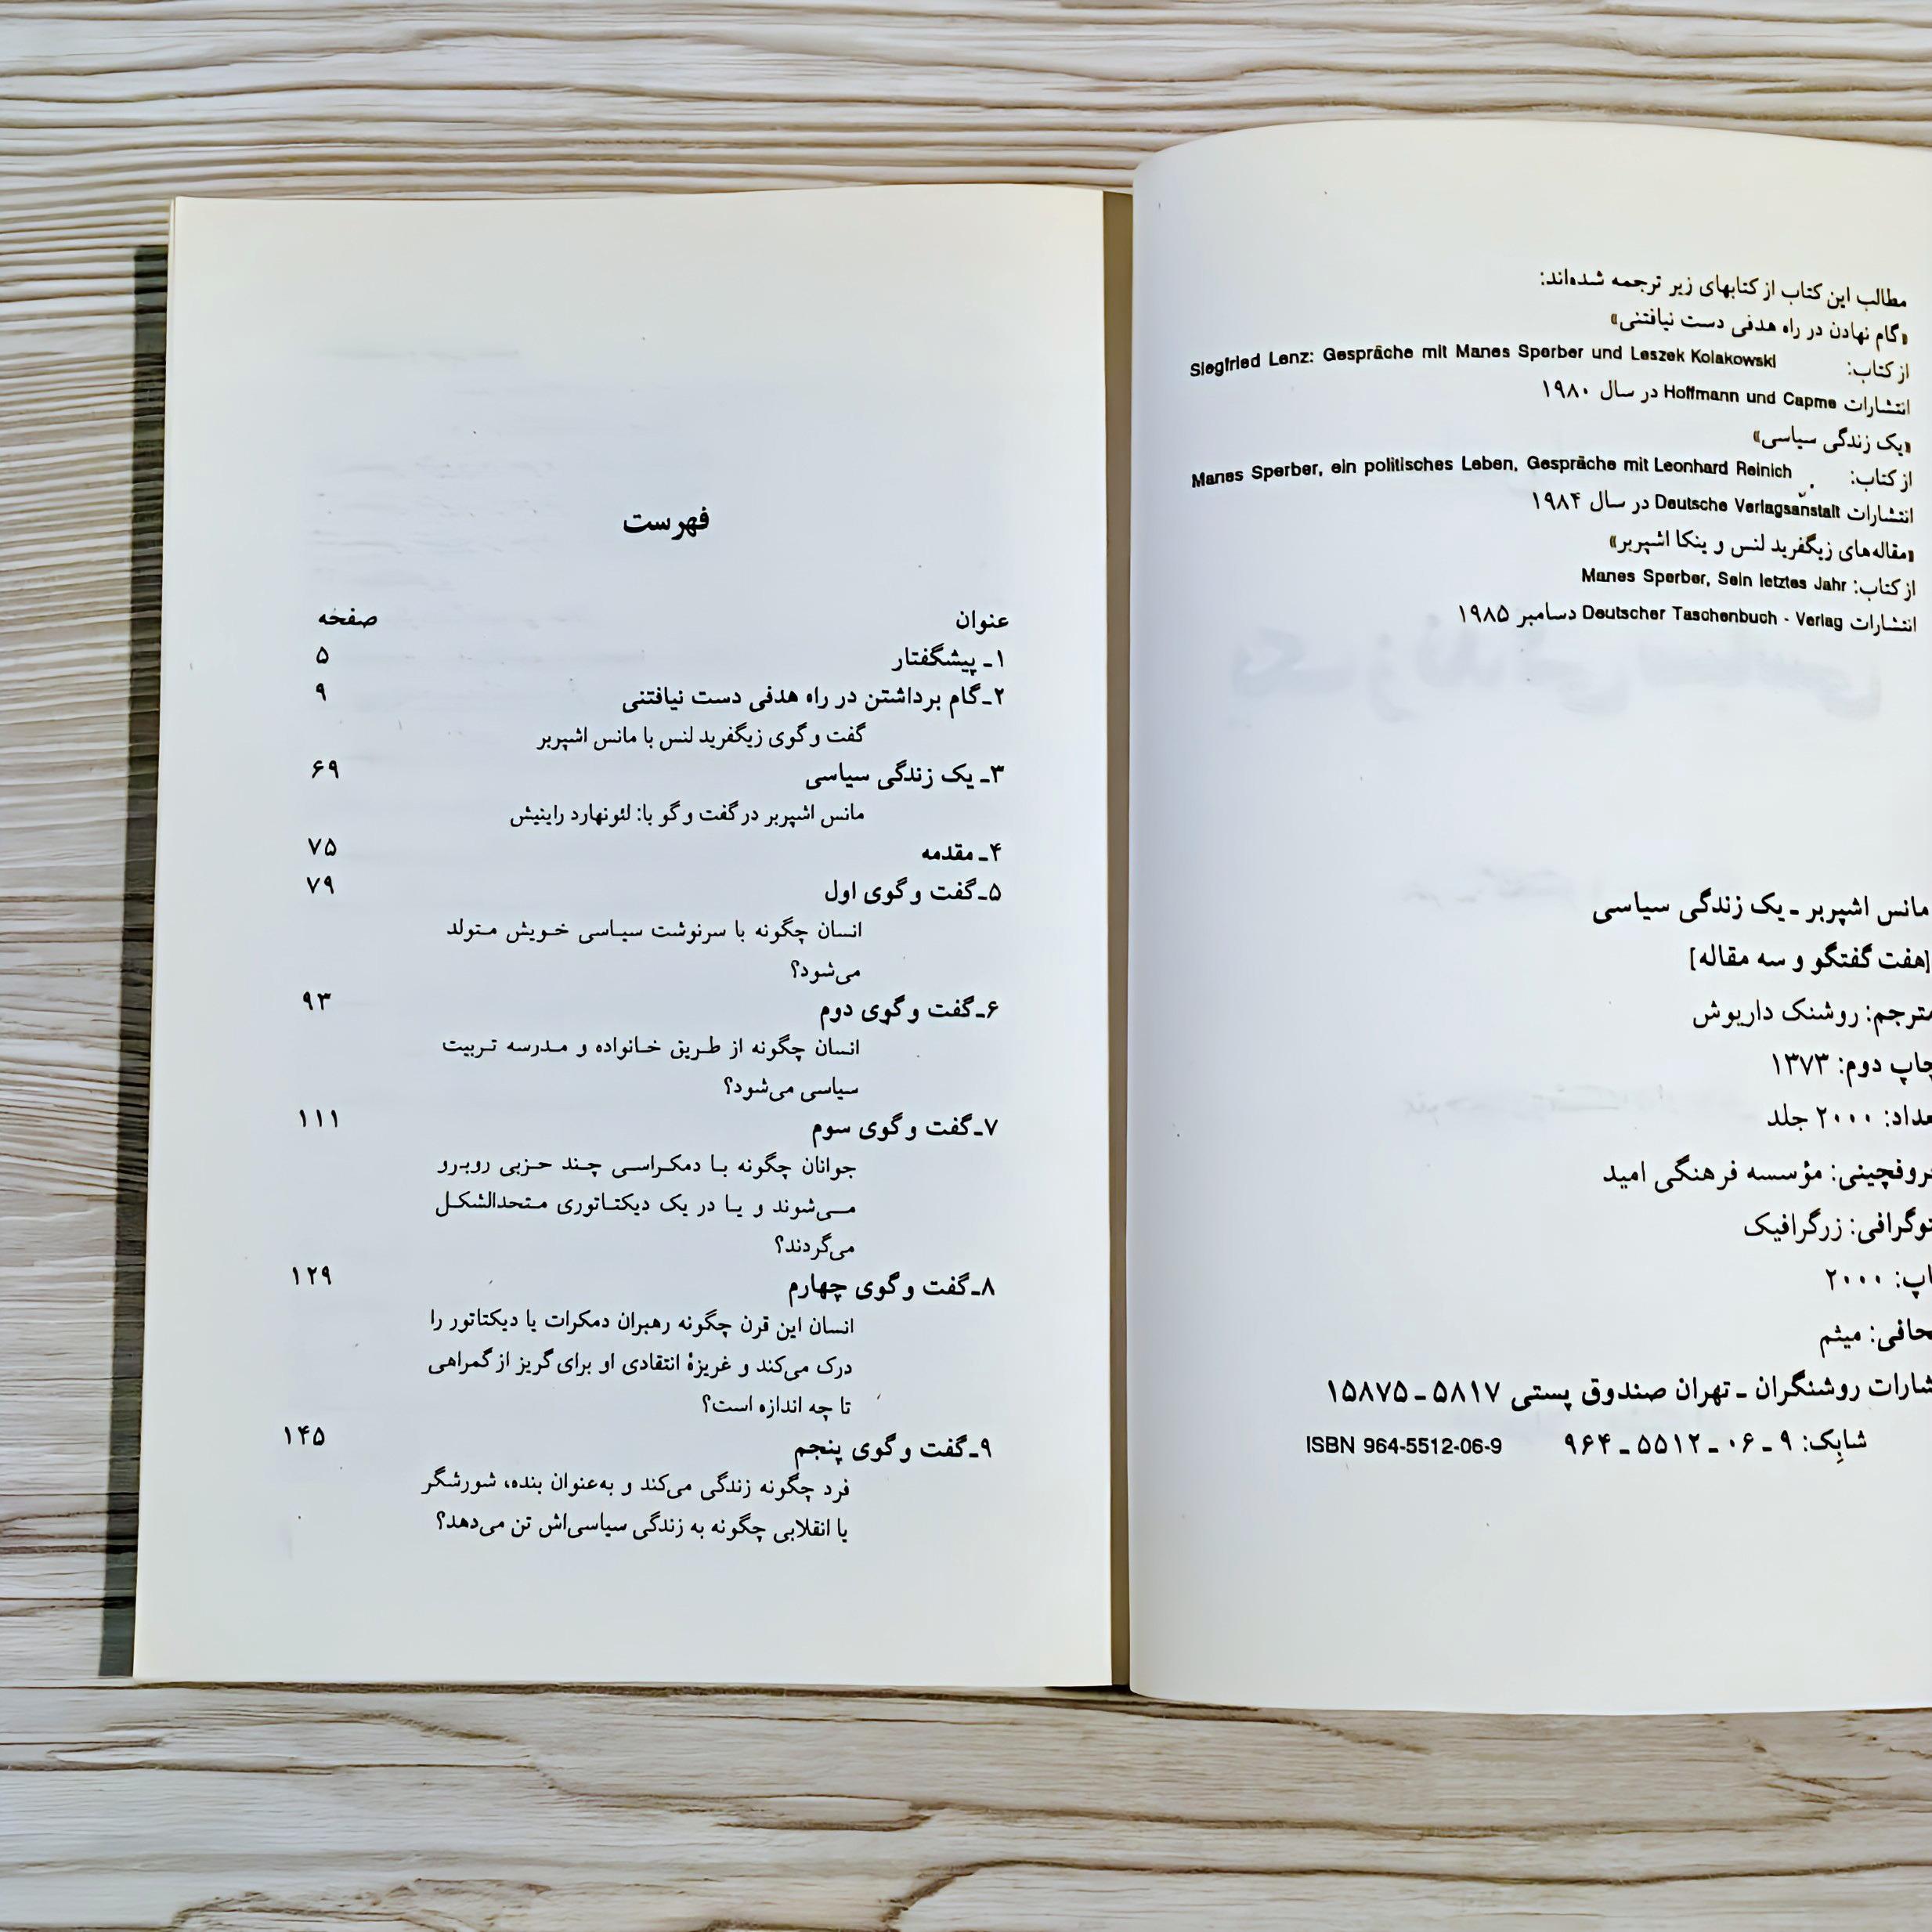 مطالب این کتاب از کتابهای زیر ترجمه شده‌اند:
«گام نهادن در راه هدفی دست نیافتنی»
از کتاب: Siegfried Lenz: Gespräche mit Manes Sperber und Leszek Kolakowski
انتشارات Hoffmann und Capme در سال ۱۹۸۰
«یک زندگی سیاسی»
از کتاب: Manes Sperber, ein politisches Leben, Gespräche mit Leonhard Reinich
انتشارات Deutsche Verlagsanstalt در سال ۱۹۸۴
«مقاله‌های زیگفرید لنس و ینکا اشپربر»
از کتاب: Manes Sperber, Sein letztes Jahr
انتشارات Deutscher Taschenbuch - Verlag دسامبر ۱۹۸۵
مانس اشپربر ـ یک زندگی سیاسی
[هفت گفتگو و سه مقاله]
مترجم: روشنک داریوش
چاپ دوم: ۱۳۷۳
۲۰۰۰ جلد
مؤسسه فرهنگی امید
زرگرافیک
۲۰۰۰
میثم
روشنگران ـ تهران صندوق پستی ۵۸۱۷ ـ ۱۵۸۷۵
شابک: ۹ ـ ۰۶ ـ ۵۵۱۲ ـ ۹۶۴ ISBN 964-5512-06-9
فهرست
عنوان صفحه
۱ـ پیشگفتار ۵
۲ـ گام برداشتن در راه هدفی دست نیافتنی ۹
گفت و گوی زیگفرید لنس با مانس اشپربر
۳ـ یک زندگی سیاسی ۶۹
مانس اشپربر در گفت و گو با: لئونهارد راینیش
۴ـ مقدمه ۷۵
۵ـ گفت و گوی اول ۷۹
انسان چگونه با سرنوشت سیاسی خویش متولد
می‌شود؟
۶ـ گفت و گوی دوم ۹۳
انسان چگونه از طریق خانواده و مدرسه تربیت
سیاسی می‌شود؟
۷ـ گفت و گوی سوم ۱۱۱
جوانان چگونه با دمکراسی چند حزبی روبرو
می‌شوند و یا در یک دیکتاتوری متحدالشکل
می‌گردند؟
۸ـ گفت و گوی چهارم ۱۲۹
انسان این قرن چگونه رهبران دمکرات یا دیکتاتور را
درک می‌کند و غریزهٔ انتقادی او برای گریز از گمراهی
تا چه اندازه است؟
۹ـ گفت و گوی پنجم ۱۴۵
فرد چگونه زندگی می‌کند و به‌عنوان بنده، شورشگر
یا انقلابی چگونه به زندگی سیاسی‌اش تن می‌دهد؟